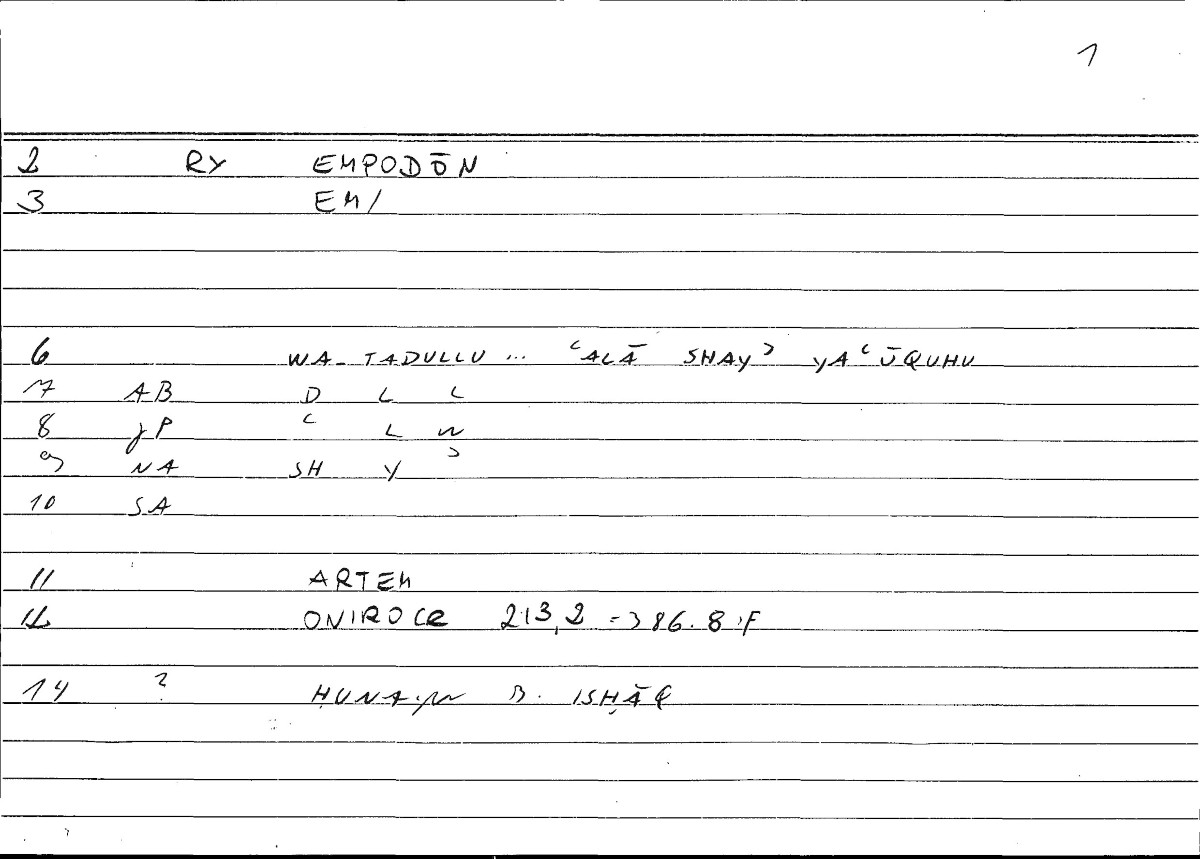 1
2 RY EMPODŌN
3 EM/
6 WA-TADULLU ... ʿALĀ SHAYʾ YAʿŪQUHU
7 AB D L L
8 JP ʿ L W
9 NA SH Y ʾ
10 SA
11 ARTEM
12 ONIROCR 213,2 = 386.8 :F
14 ? ḤUNAYN B. ISḤĀQ